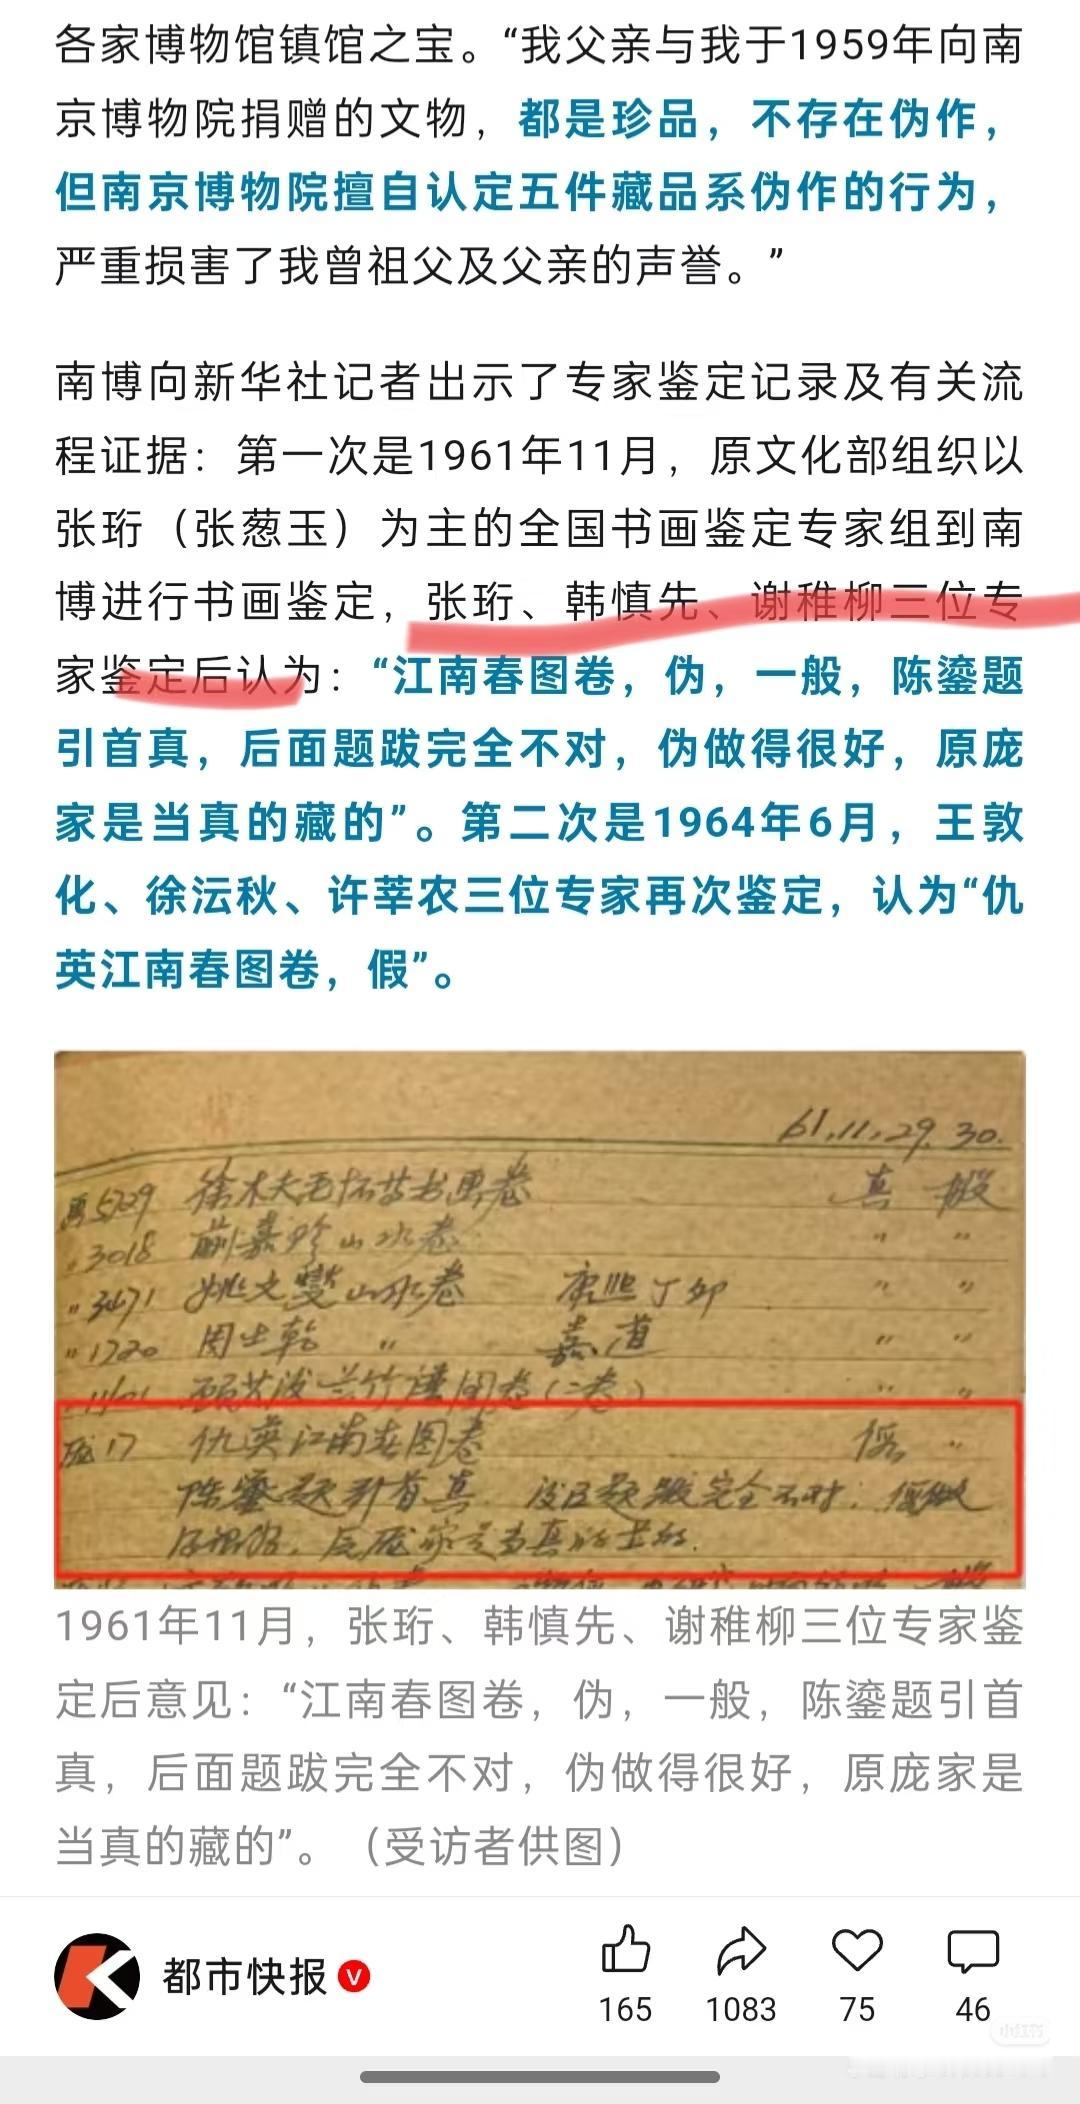 各家博物馆镇馆之宝。“我父亲与我于1959年向南
京博物院捐赠的文物，都是珍品，不存在伪作，
但南京博物院擅自认定五件藏品系伪作的行为，
严重损害了我曾祖父及父亲的声誉。”
南博向新华社记者出示了专家鉴定记录及有关流
程证据：第一次是1961年11月，原文化部组织以
张珩（张葱玉）为主的全国书画鉴定专家组到南
博进行书画鉴定，张珩、韩慎先、谢稚柳三位专
家鉴定后认为：“江南春图卷，伪，一般，陈鎏题
引首真，后面题跋完全不对，伪做得很好，原庞
家是当真的藏的”。第二次是1964年6月，王敦
化、徐沄秋、许莘农三位专家再次鉴定，认为“仇
英江南春图卷，假”。
61.11.29.30.
5729 书画卷 真 般
"3018 山水卷 " "
"3471 姚文燮山水卷 康熙丁卯 " "
"1720 周士乾 " 嘉道 " "
兰竹 图卷（二卷） " "
17 仇英江南春图卷 伪 "
陈鎏题引首真 后面题跋完全不对，伪做
得很好，原庞家是当真的藏的.
1961年11月，张珩、韩慎先、谢稚柳三位专家鉴
定后意见：“江南春图卷，伪，一般，陈鎏题引首
真，后面题跋完全不对，伪做得很好，原庞家是
当真的藏的”。（受访者供图）
都市快报 V
165 1083 75 46
小红书